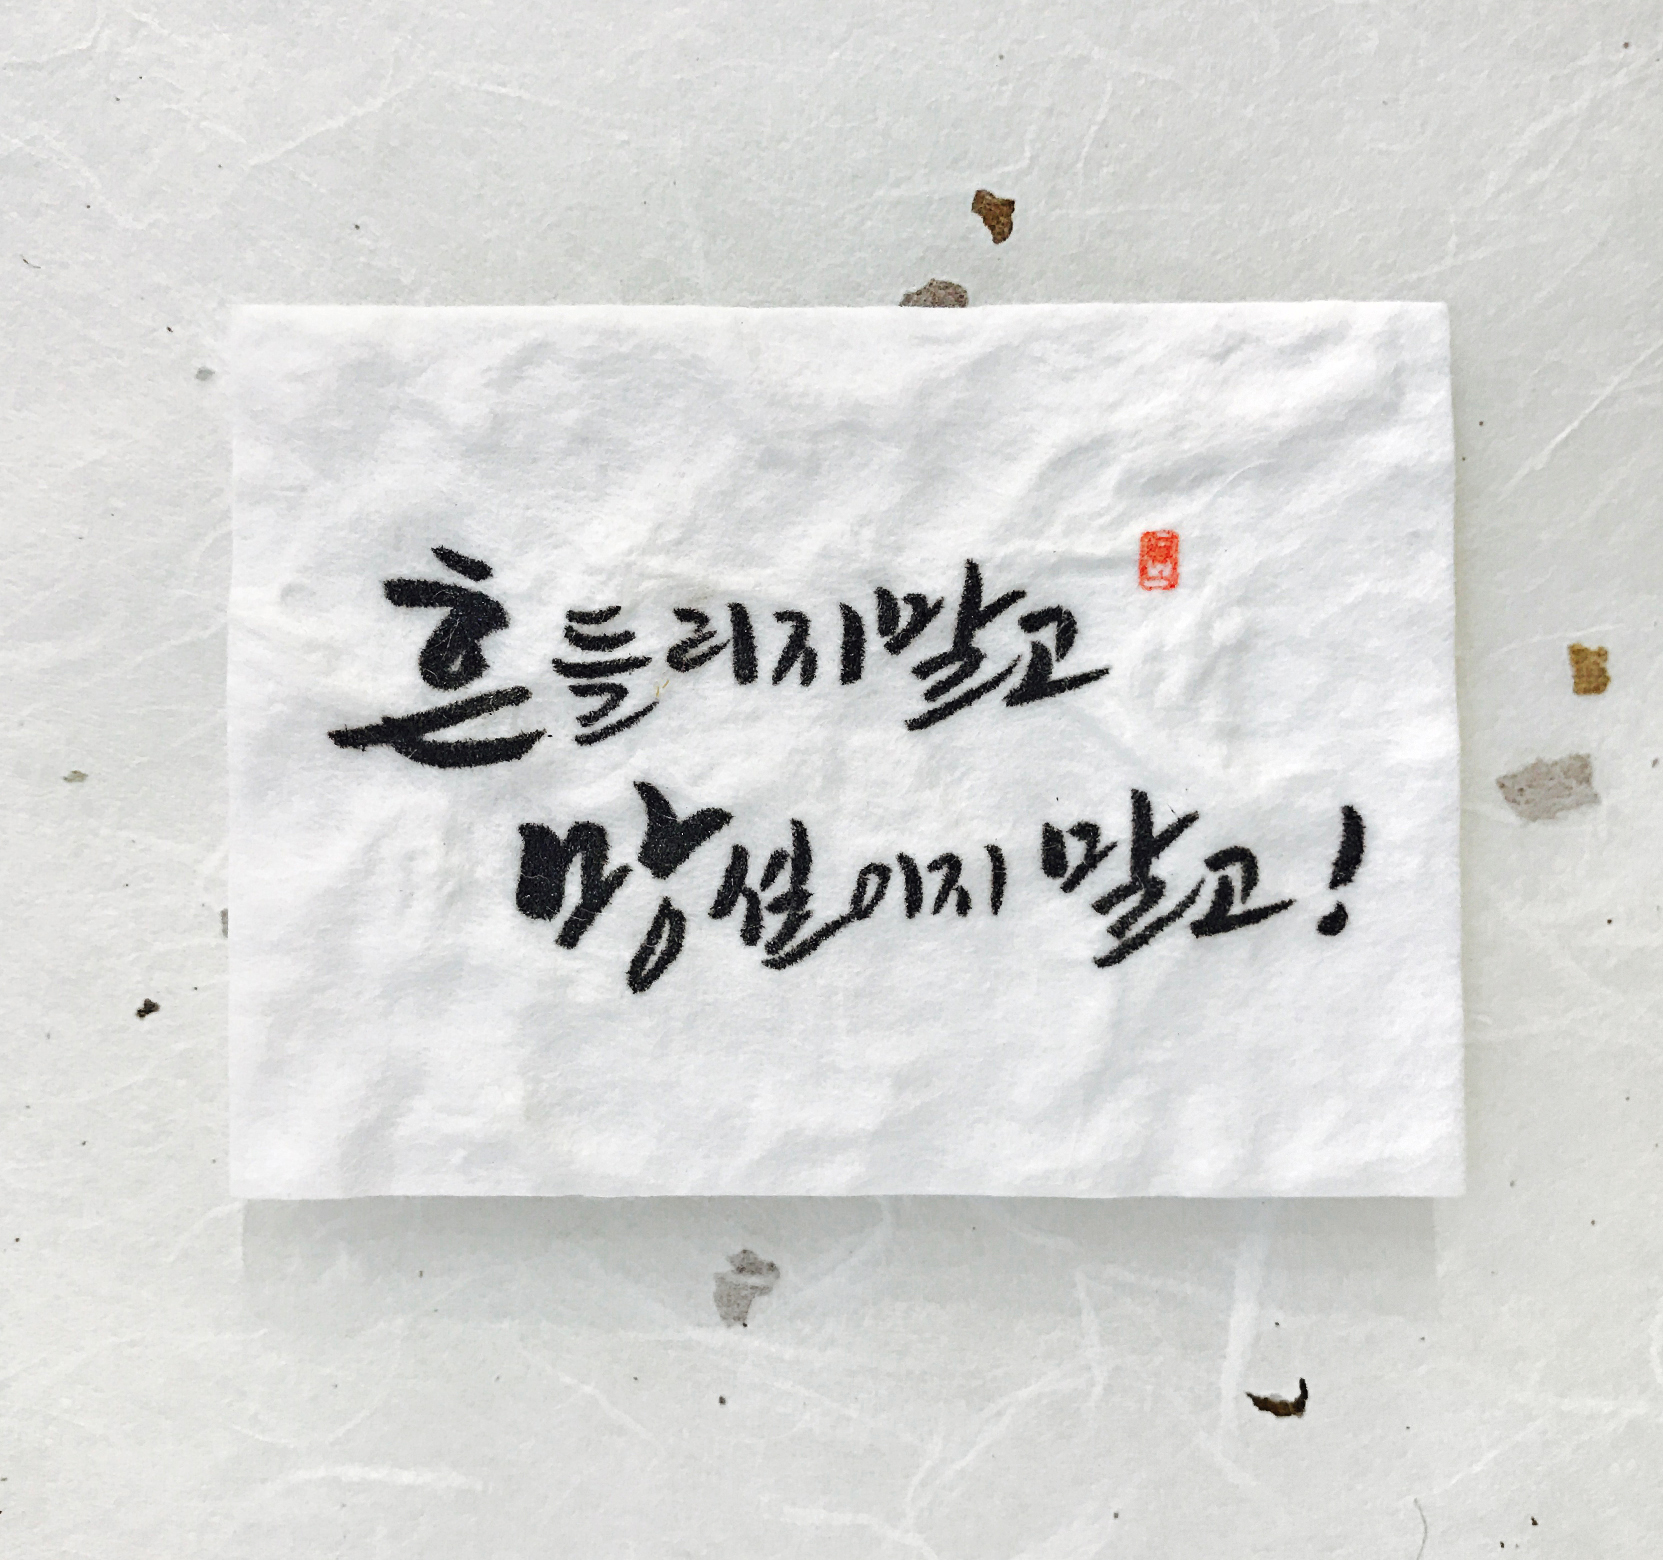 흔들리지말고
망설이지 말고!